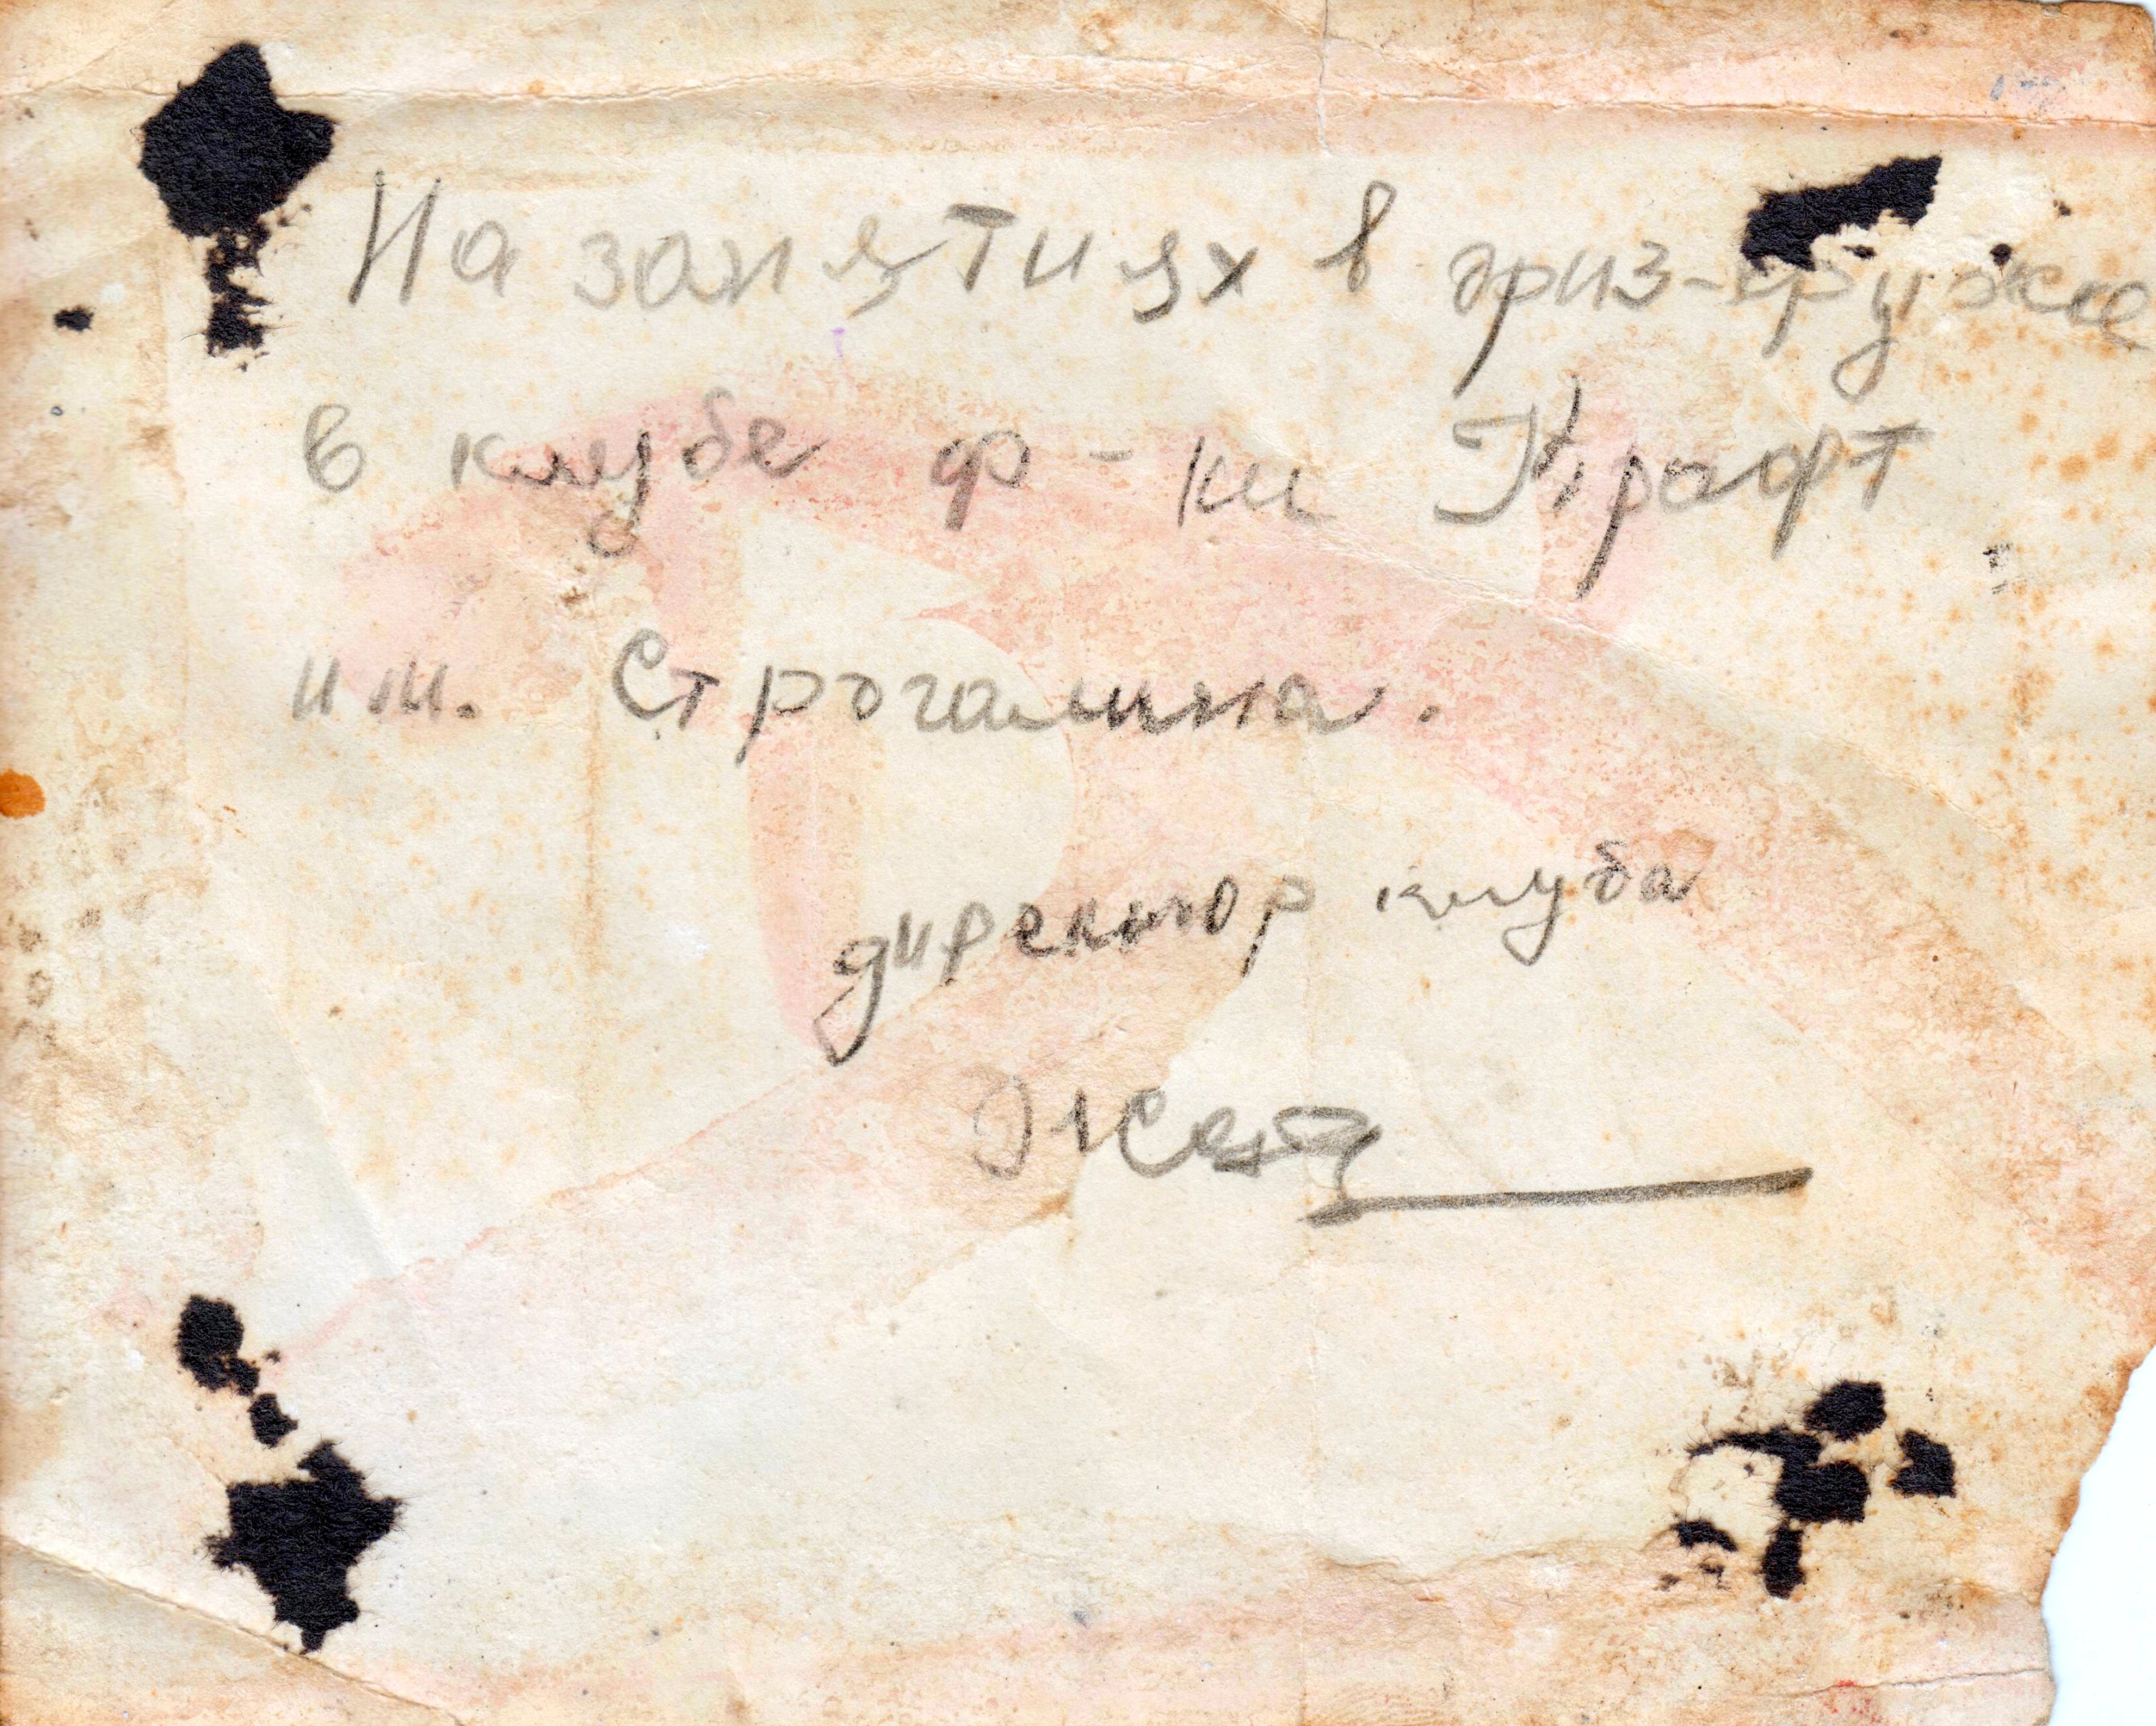 На занятиях в физ-кружке
в клубе ф-ки Крафт
им. Строгалина.
директор клуба